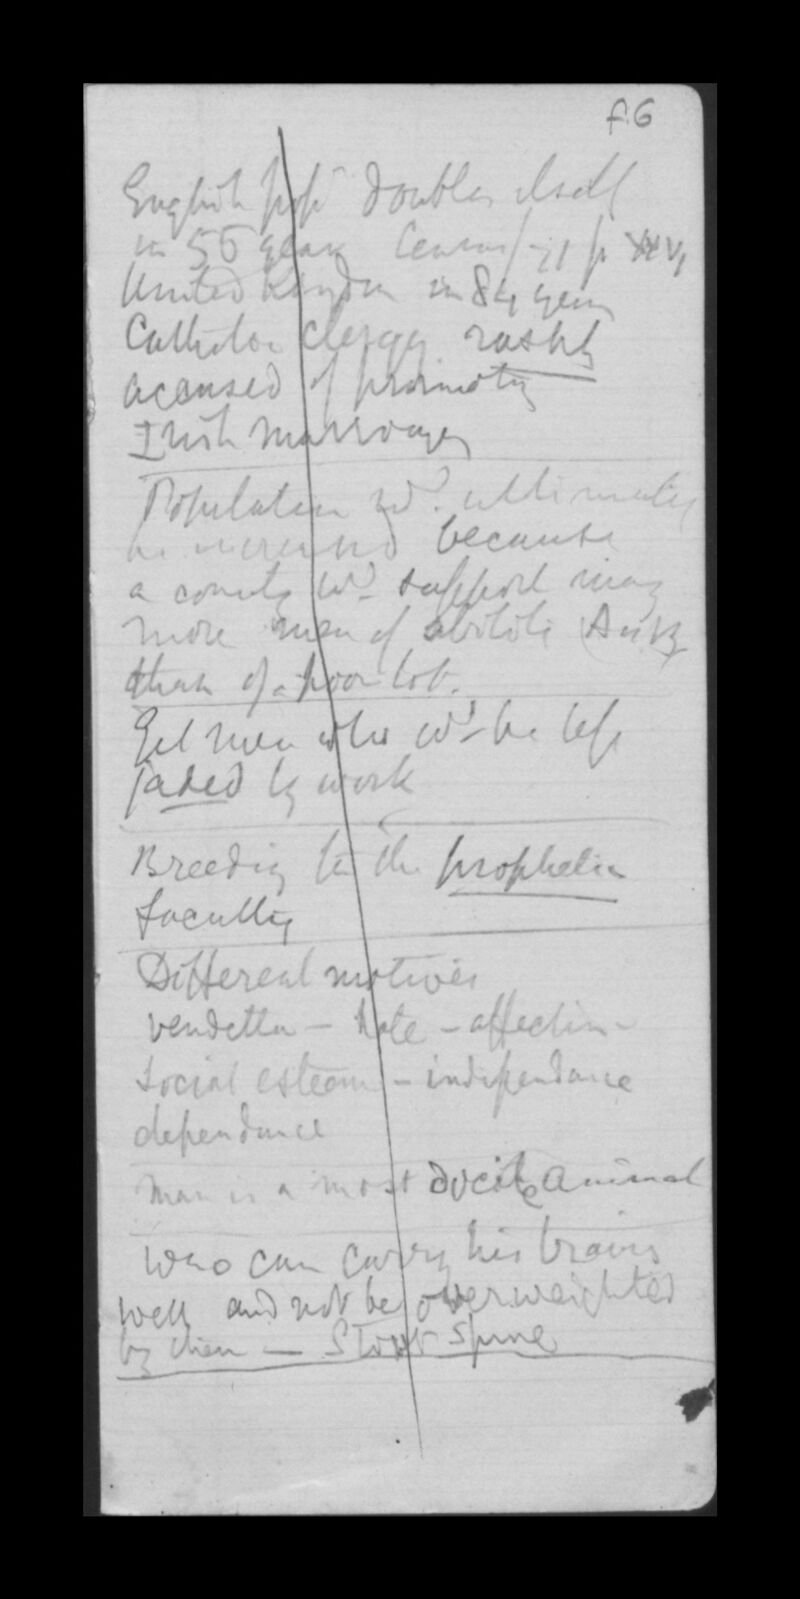 f.6
English popn doubles itself
in 56 years Census/71 p xvi
United Kingdom in 84 years
Catholic clergy rashly
accused of promoting
Irish marriages
Population wd. ultimately
be increased because
a country wd support many
more men of ability
than of a poor lot.
Get men who wd be less
jaded by work
Breeding for the prophetic
faculty
Different motives
vendetta – hate – affection –
social esteem – independance
dependance
Man is a most docile animal
Who can carry his brains
well and not be overweighted
by them — Stout Spine